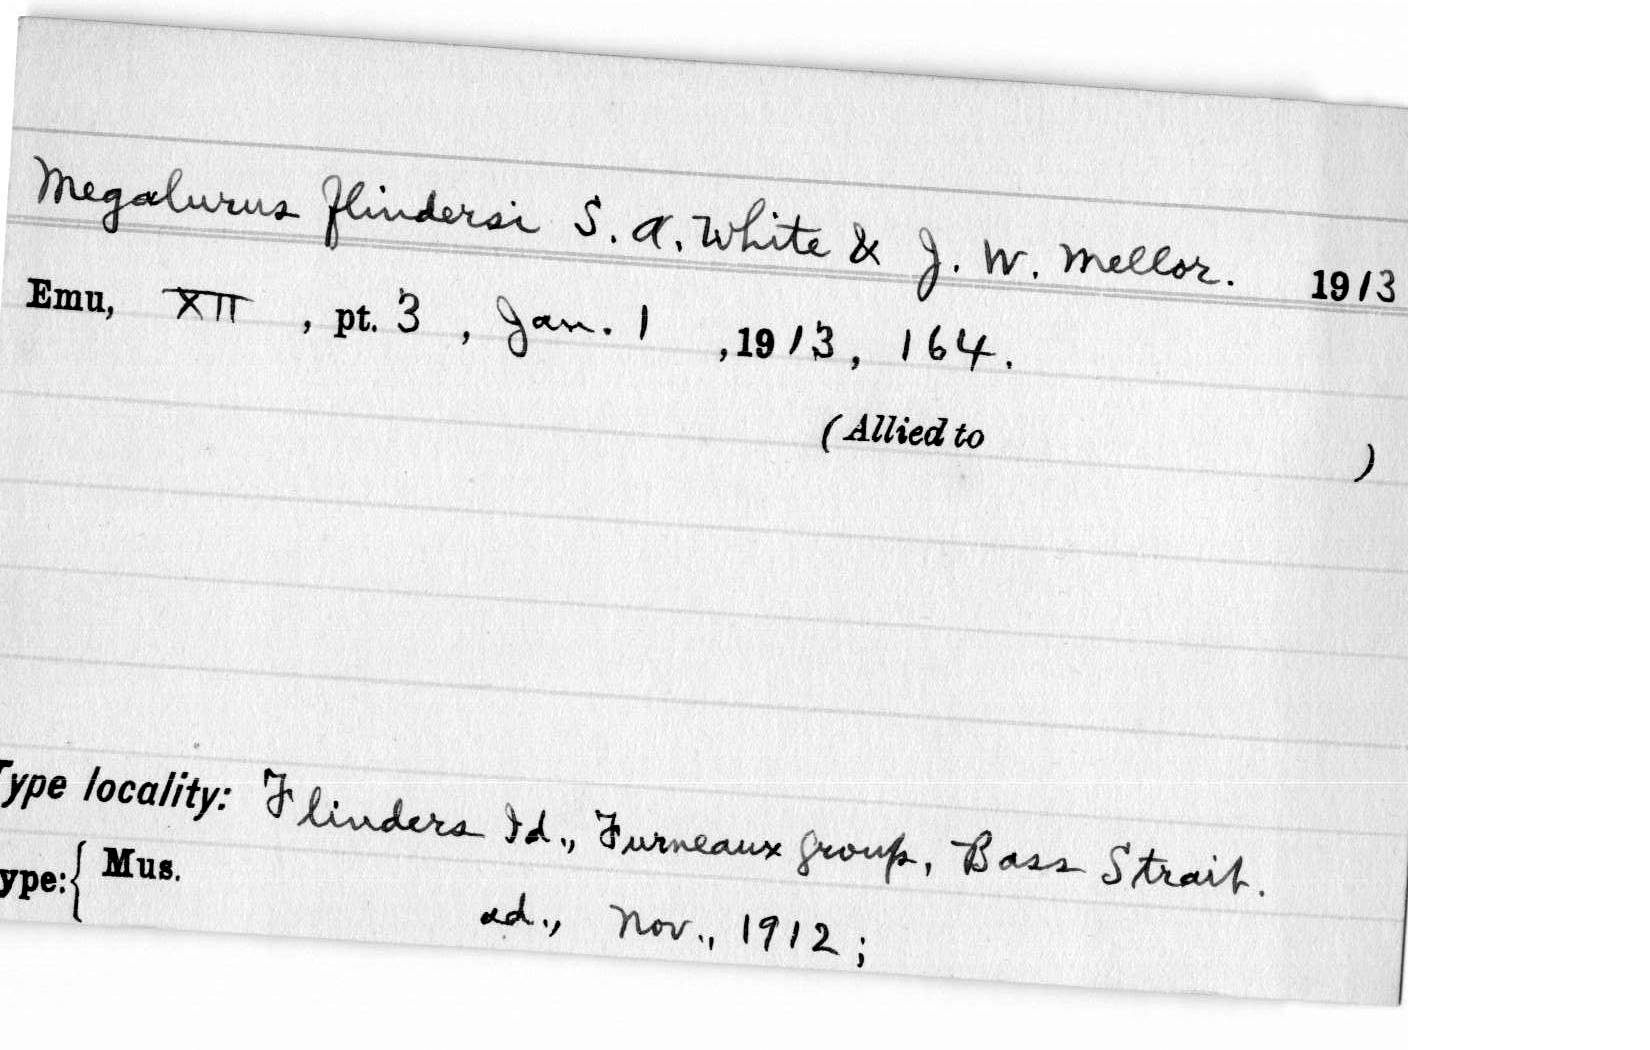 Megalurus flindersi S. A. White & J. W. Mellor. 1913
Emu, XII, pt. 3, Jan. 1, 1913, 164.
(Allied to )
Type locality: Flinders Id., Furneaux group, Bass Strait.
ype: { Mus.
ad., Nov., 1912;